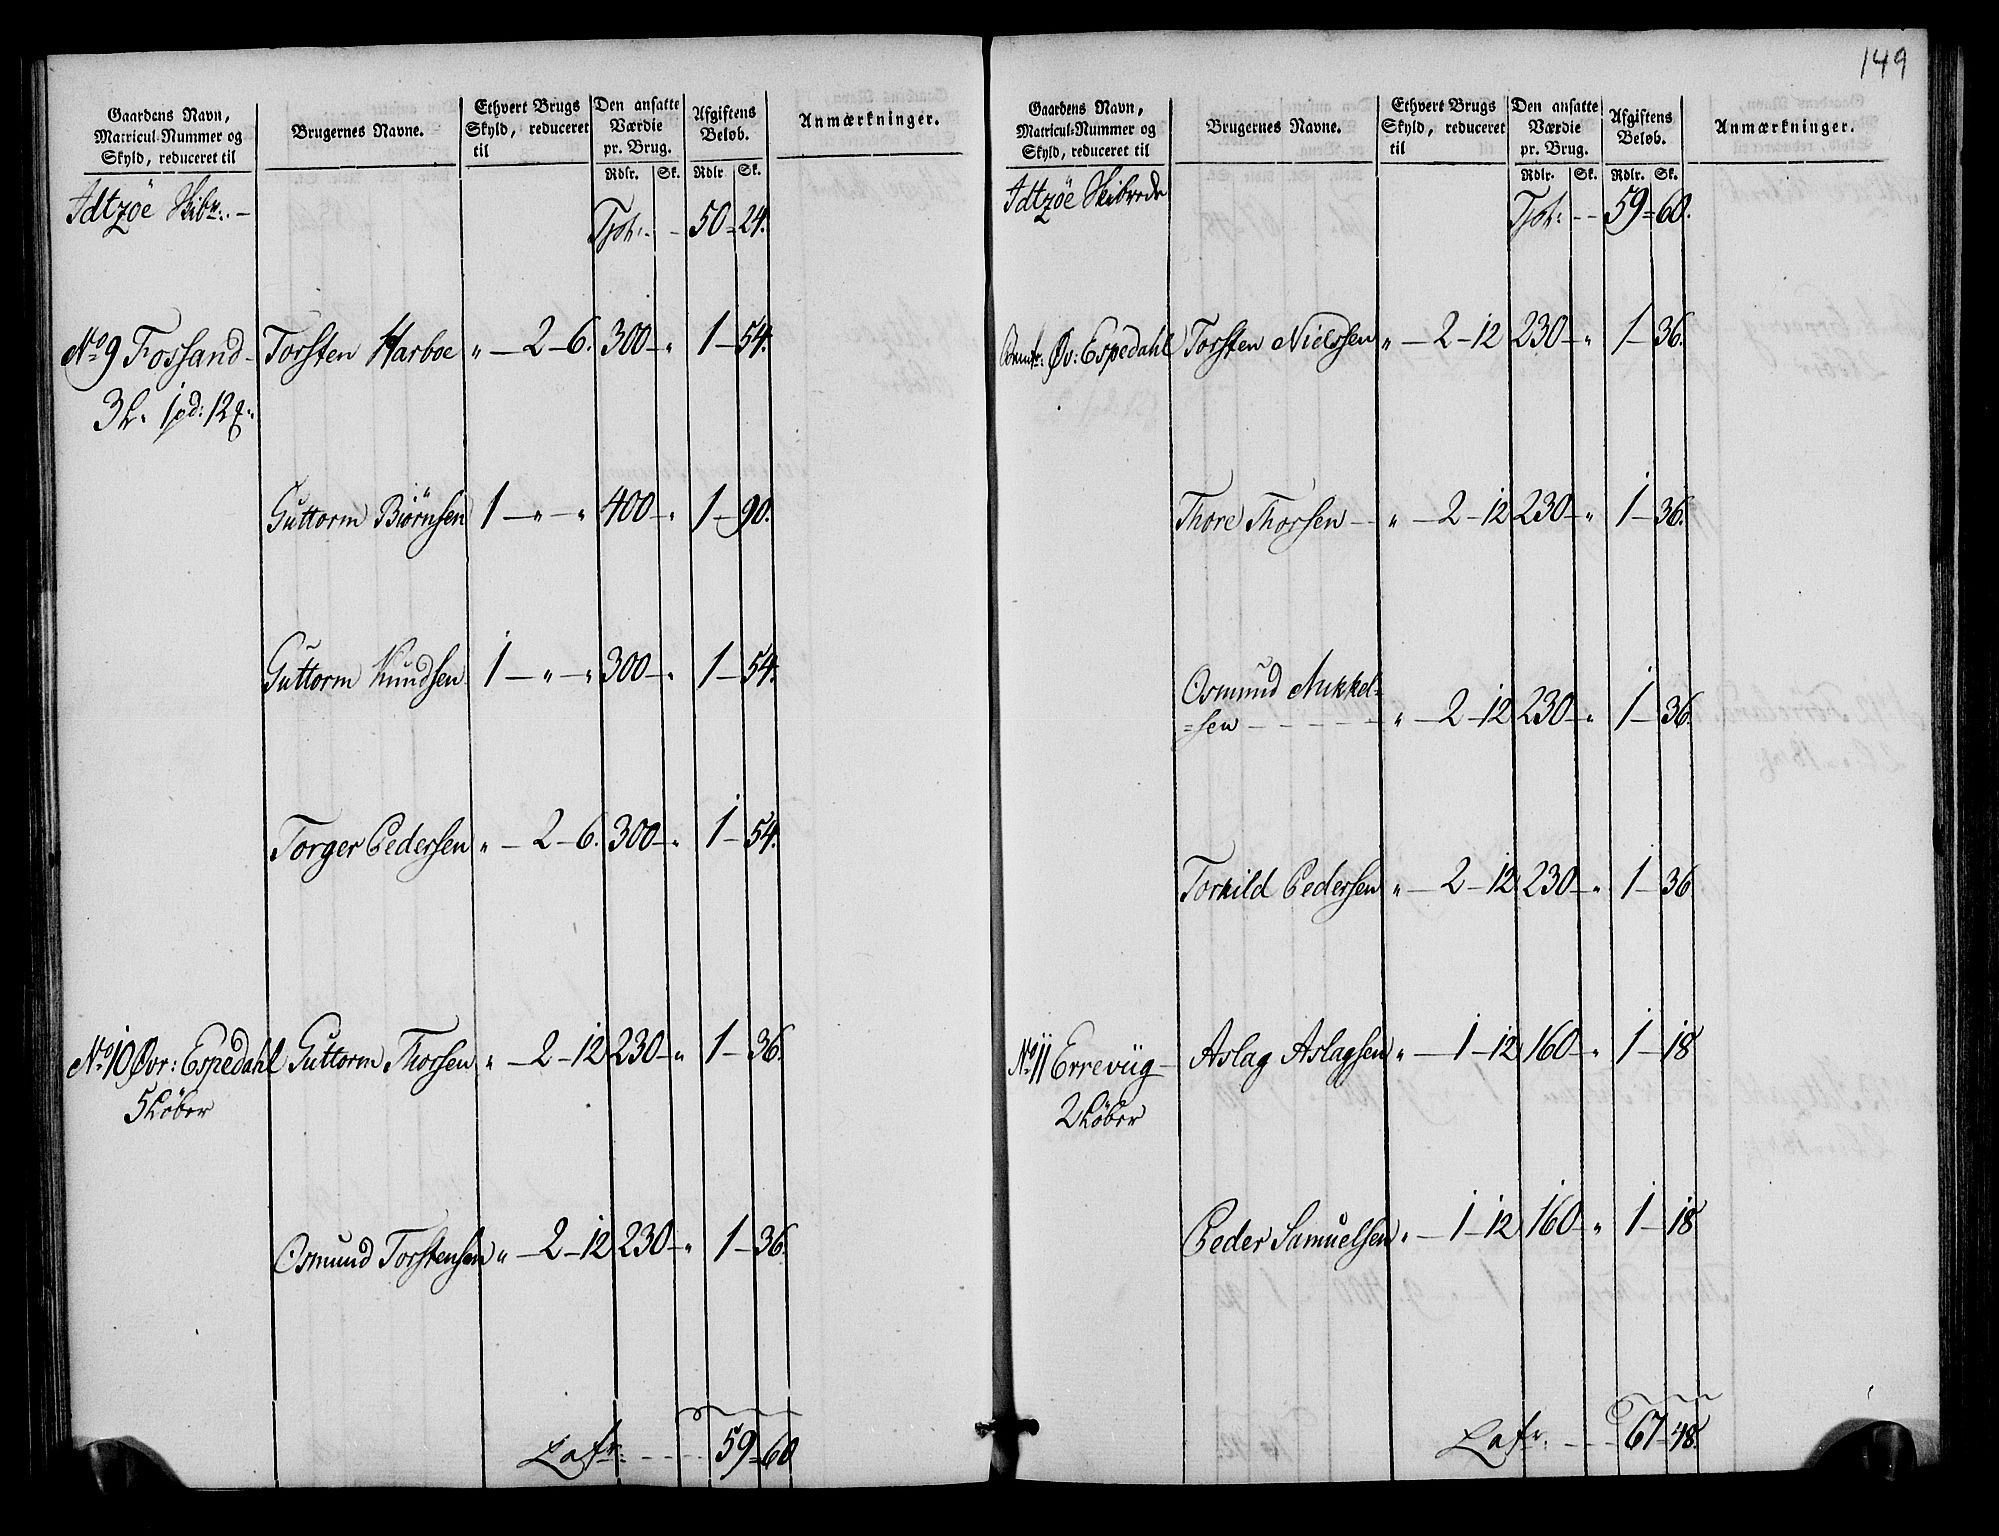 149
Gaardens Navn, Matricul-Nummer og Skyld, reduceret til | Brugernes Navne. | Ethvert Brugs Skyld, reduceret til | Den ansatte Værdie pr. Brug. Rdlr. Sk. | Afgiftens Beløb. Rdlr. Sk. | Anmærkninger.
Idtzöe Skibr: —
Tpt: - - 50 - 24.
No 9 Fossand - Torsten Harboe " — 2 — 6. 300 — " 1 — 54.
3 L. 1 pd: 12
Guttorm Biörnsen 1 — " — " 400 — " 1 — 90.
Guttorm Knudsen 1 — " — " 300 — " 1 — 54.
Torger Pedersen " — 2 — 6. 300 — " 1 — 54.
No 10 Øvr: Espedahl Guttorm Thorsen " — 2 — 12 230 — " 1 — 36.
5 Löber
Osmund Torstensen " — 2 — 12 230 — " 1 — 36.
Lafr: - - - - 59 = 60
Gaardens Navn, Matricul-Nummer og Skyld, reduceret til | Brugernes Navne. | Ethvert Brugs Skyld, reduceret til | Den ansatte Værdie pr. Brug. Rdlr. Sk. | Afgiftens Beløb. Rdlr. Sk. | Anmærkninger.
Idtzöe Skibrede
Tpt: - - 59 = 60.
Øv: Espedahl Torsten Nielssen " — 2 — 12 230 — " 1 — 36.
Thore Thorsen - - " — 2 — 12 230 — " 1 — 36.
Osmund Mikkel=
=sen - - - - - - " — 2 — 12 230 — " 1 — 36.
Torkild Pedersen " — 2 — 12 230 — " 1 — 36
No 11 Errevüg - Aslag Aslagsen " — 1 — 12 160 — " 1 — 18
2 Löber
Peder Samuelsen " — 1 — 12 160 — " 1 — 18
Lafr. - - - 67 - 48.